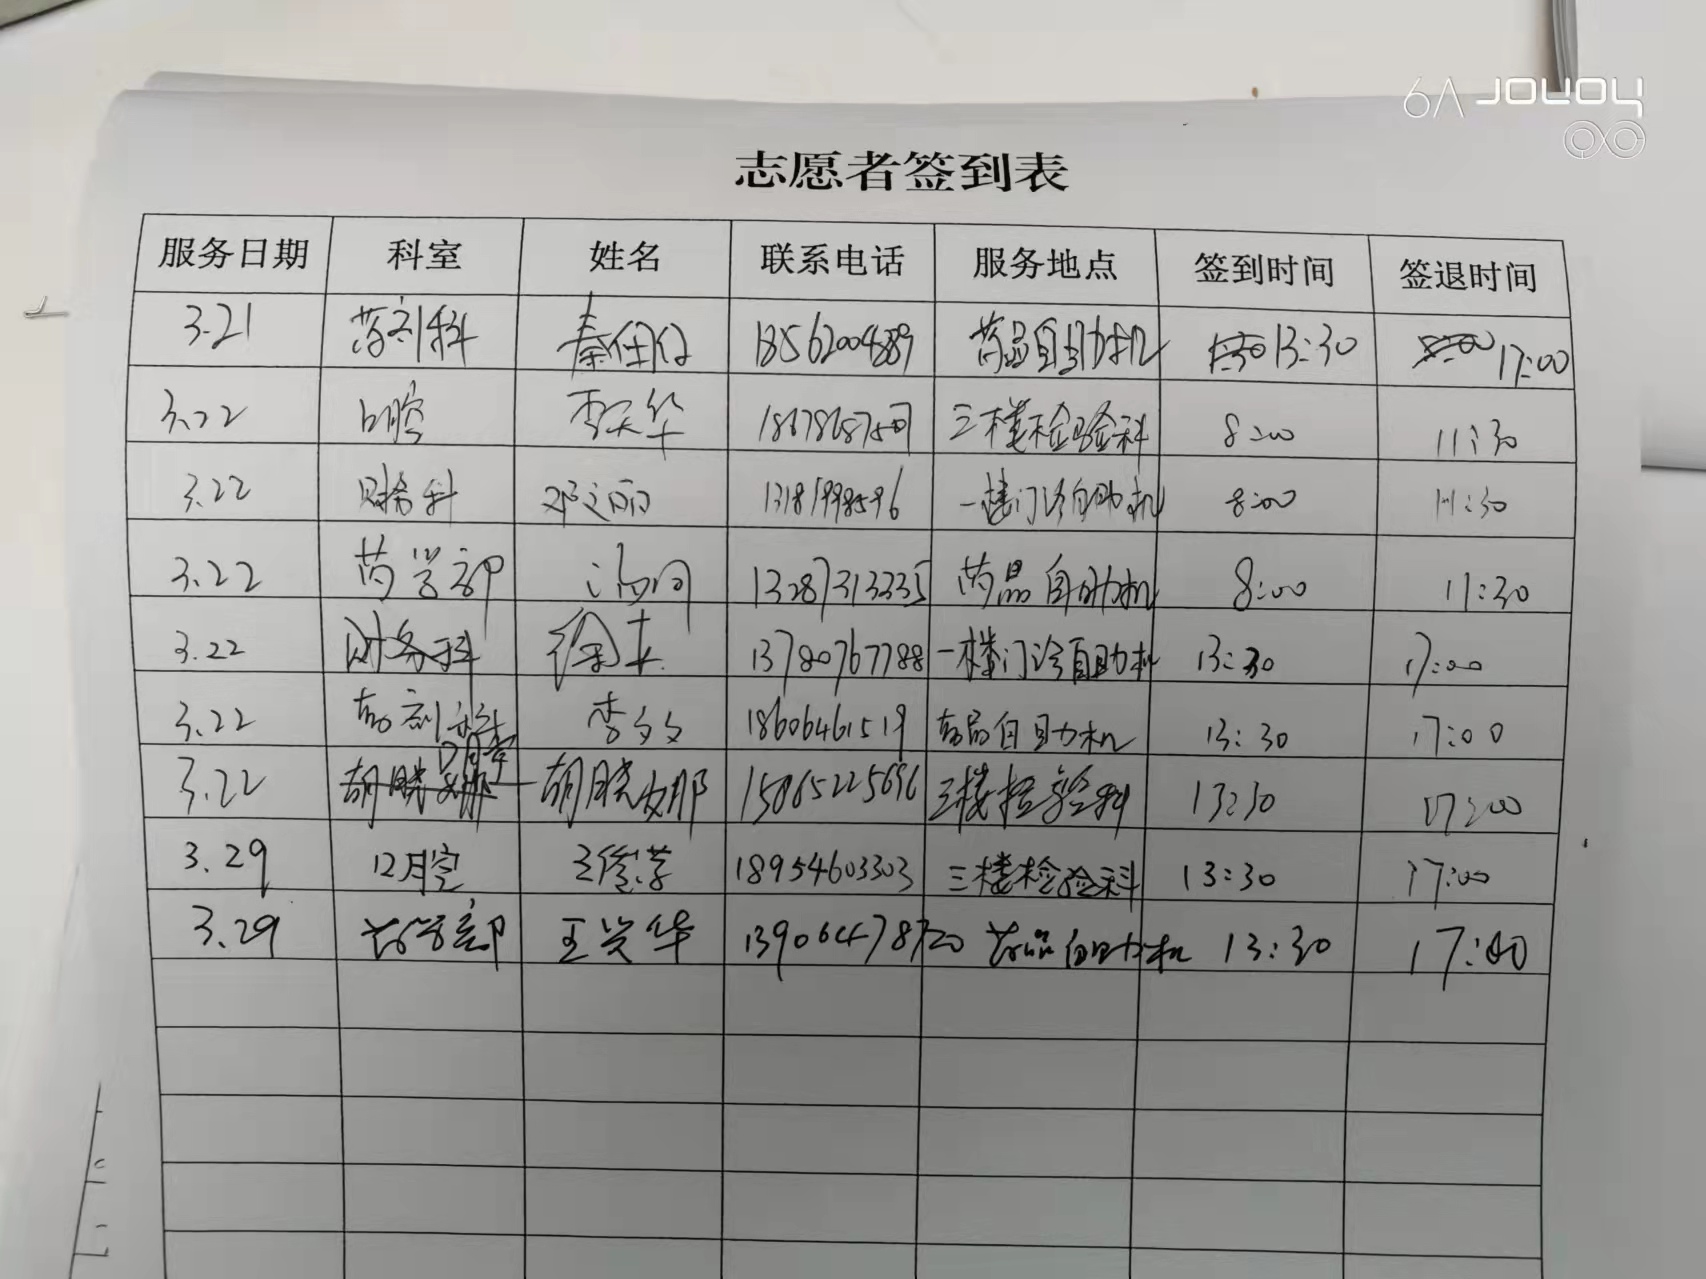 JOYOY
志愿者签到表
服务日期 科室 姓名 联系电话 服务地点 签到时间 签退时间
3.21 药剂科 药品自助机 13:30 17:00
3.22 口腔 三楼检验科 8:00 11:30
3.22 财务科 邓文丽 一楼门诊自助机 8:00 11:30
3.22 药学部 13287313335 药品自助机 8:00 11:30
3.22 财务科 13780767788 一楼门诊自助机 13:30 17:00
3.22 药剂科 李文文 18606461519 药品自助机 13:30 17:00
口腔
3.22 胡晓娜 15865225696 三楼检验科 13:30 17:00
3.29 口腔 18954603303 三楼检验科 13:30 17:00
3.29 药学部 王兴华 13906478720 药品自助机 13:30 17:00